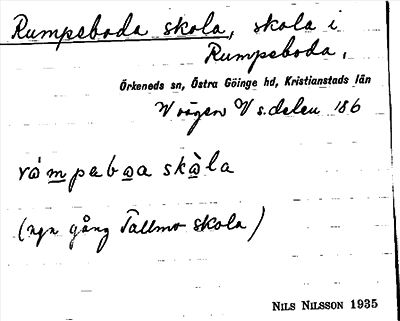 Rumpeboda skola, skola i
Rumpeboda,
Örkeneds sn, Östra Göinge hd, Kristianstads län
V vägen V s.delen 186
råmpabɷa skàla
(ngn gång Tallmo skola)
NILS NILSSON 1935